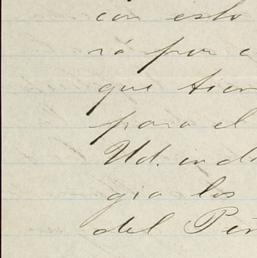 con esto
rá por
que tien
para el
Ud. en di
gia los
del Per